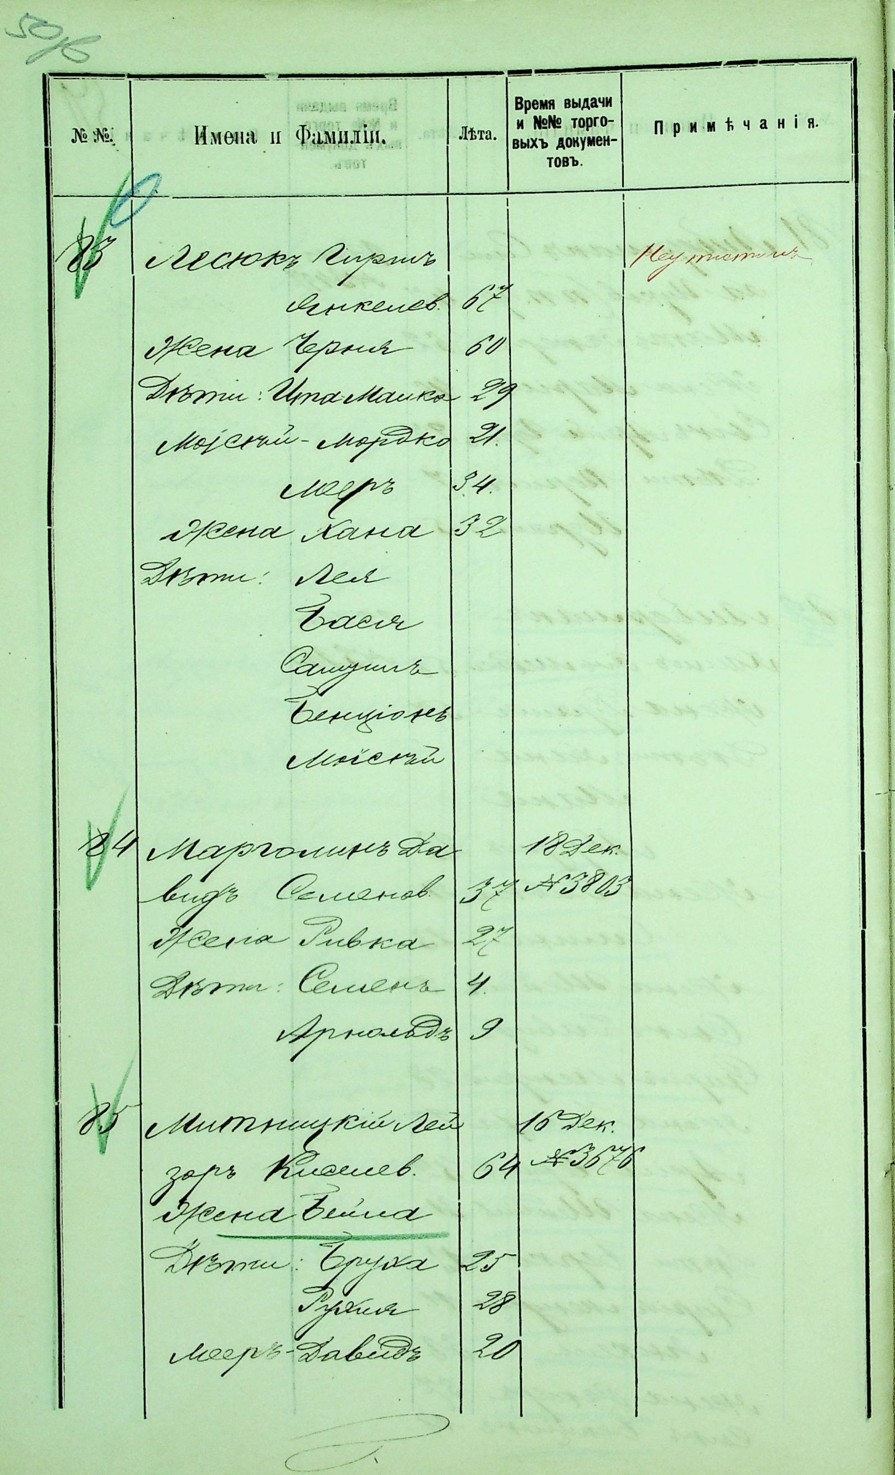 50/б
№ №.
Имена и Фамиліи.
Лѣта.
Время выдачи
и №№ торго-
выхъ докумен-
товъ.
Примѣчанія.
83 Лесюкъ Гиршъ
Янкелев. 67
Жена Черня 60
Дѣти: Ита Малка 29
Мойсей-Мордко 21.
Мееръ 34.
Жена Хана 32
Дѣти: Лея
Бася
Самуилъ
Бенціонъ
Моисей
84 Марголинъ Да 18 Дек.
видъ Семенов. 37 №3803
Жена Ривка 27
Дѣти: Семенъ 4.
Арнольдъ 9
85 Митницкій Лей 16 Дек.
зоръ Киселев. 64 №3676
Жена Бейла
Дѣти: Бруха 25
Рухля 28
Мееръ-Давидъ 20